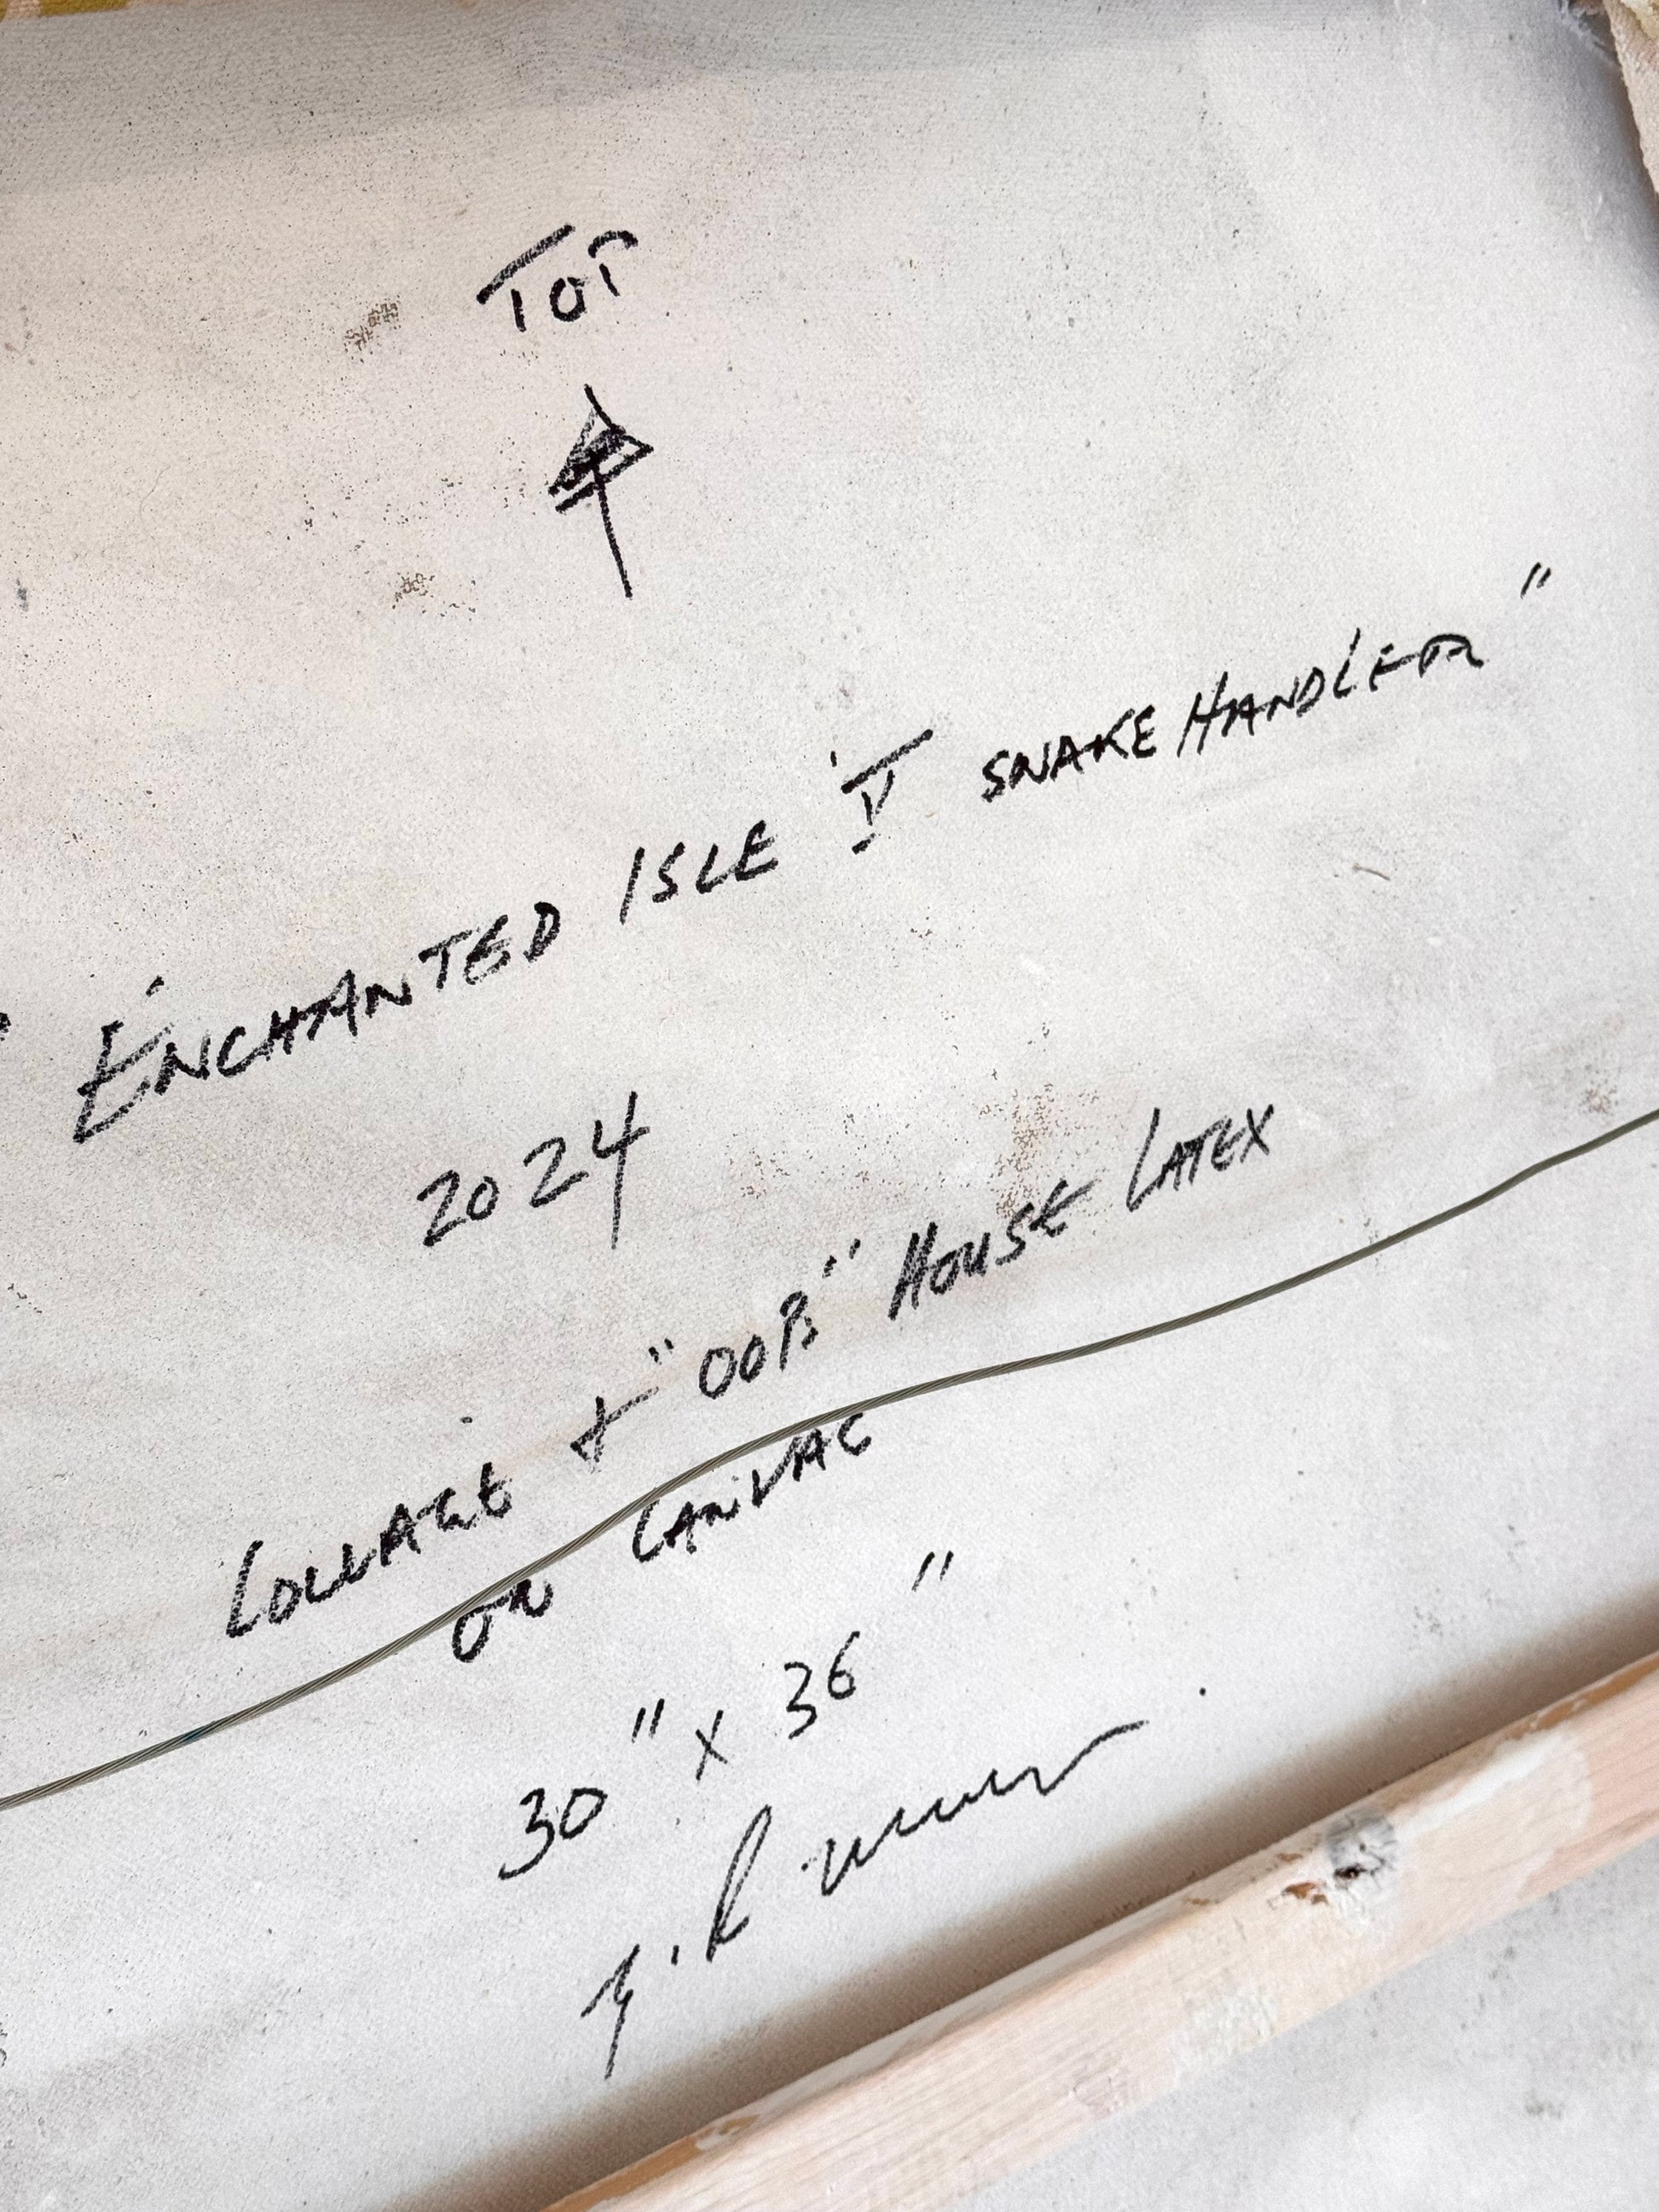 TOP
"ENCHANTED ISLE V SNAKE HANDLER"
2024
COLLAGE + "OOPS" HOUSE LATEX
ON CANVAS
30" X 36"